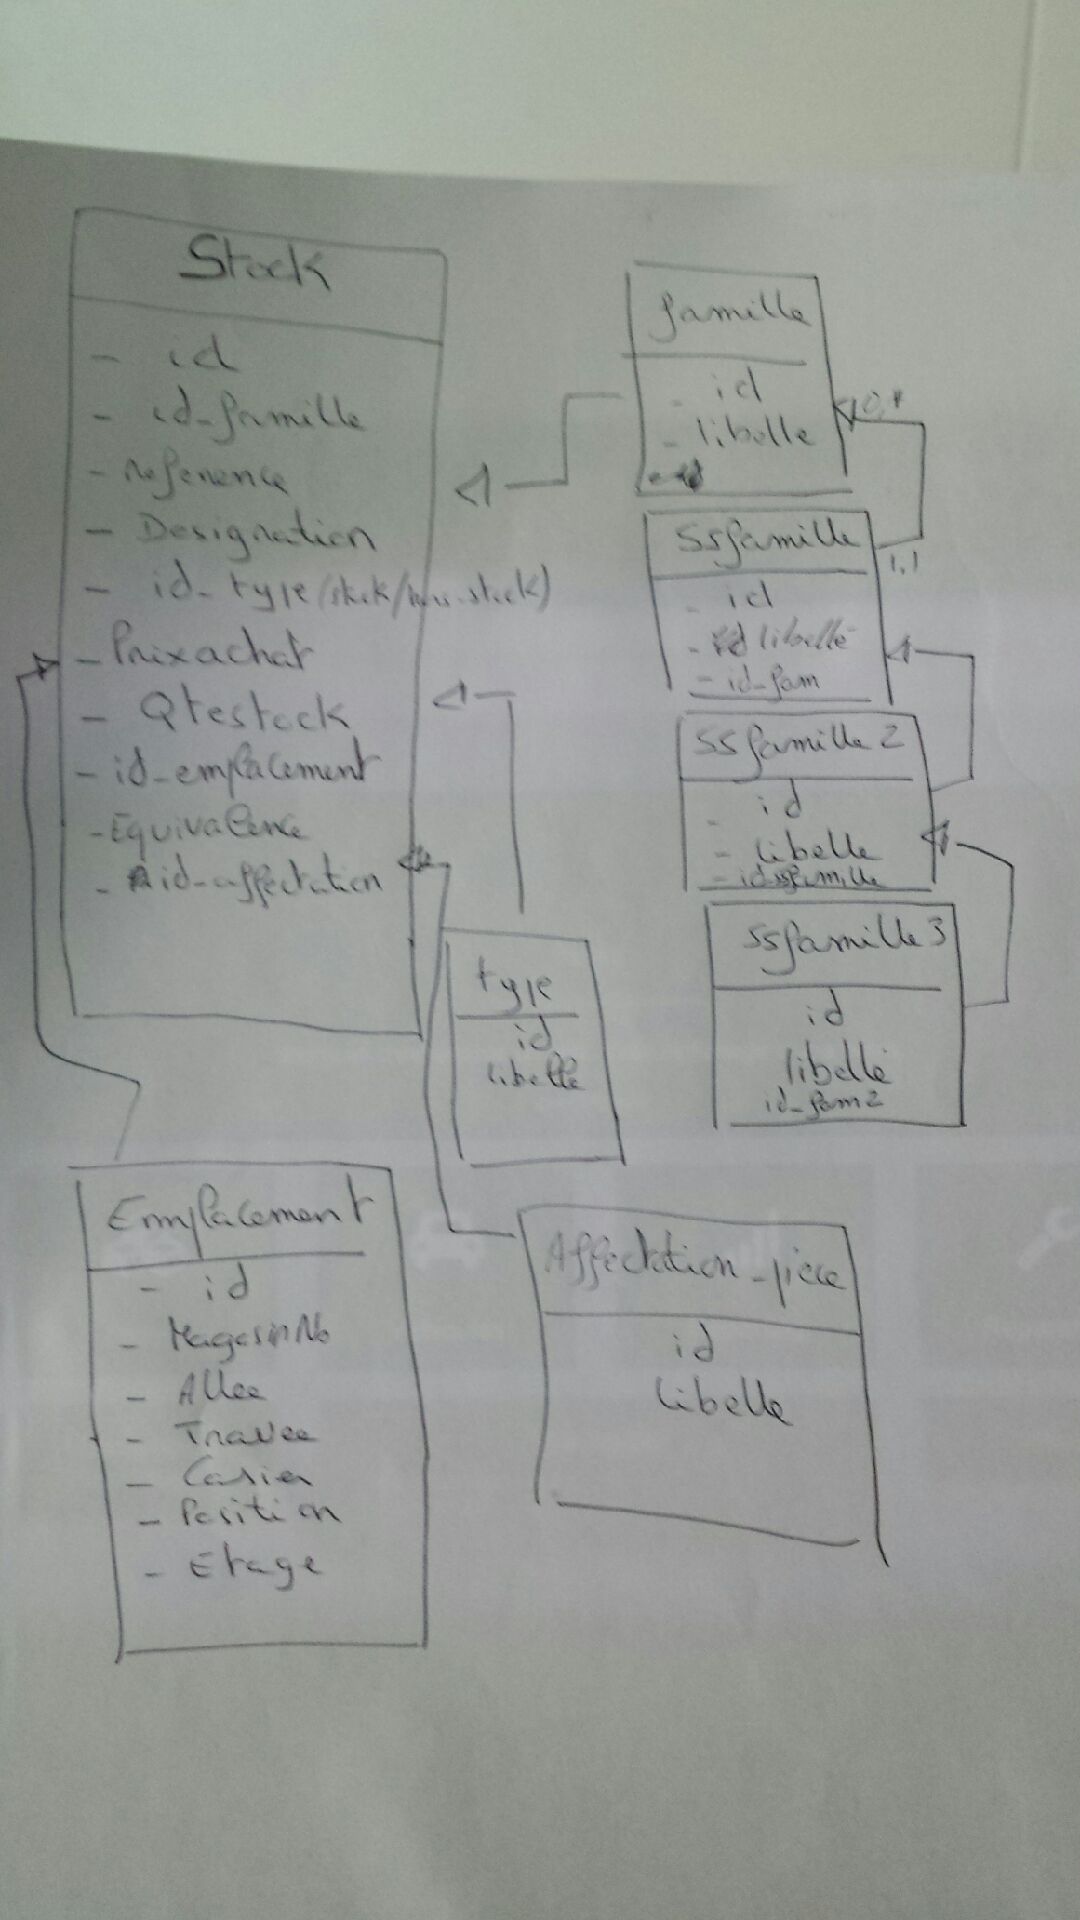 Stock
- id
- id_famille
- Reference
- Designation
- id_type (stock/hors-stock)
- Prixachat
- Qtestock
- id_emplacement
- Equivalence
- id_affectation
famille
- id
- libelle
0,*
ssfamille
1,1
- id
- libellé
- id_fam
ssfamille 2
- id
- libelle
- id_ssfamille
ssfamille 3
id
libellé
id_fam2
type
id
libellé
Emplacement
- id
- MagasinNo
- Allee
- Travee
- Casier
- Position
- Etage
Affectation_piece
id
libelle